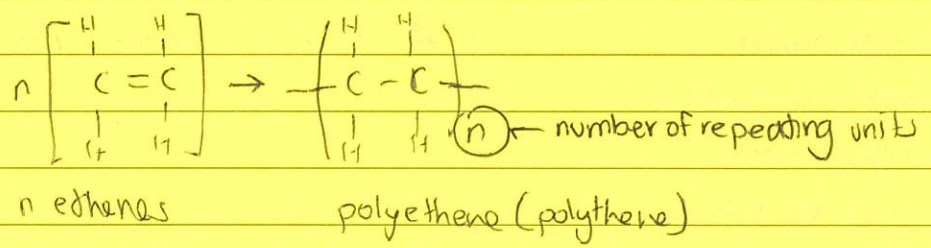 H H H H
n C = C → C - C
H H H H n ← number of repeating units
n ethenes polyethene (polythene)